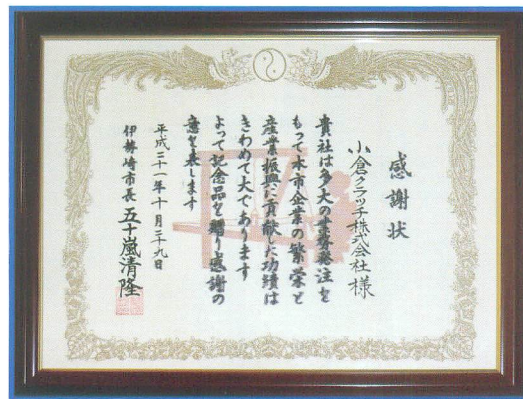 感謝状
小倉クラッチ株式会社様
貴社は多大の業務発注を
もって本市企業の繁栄と
産業振興に貢献した功績は
きわめて大であります
よって記念品を贈り感謝の
意を表します
平成二十一年十月二十九日
伊勢崎市長 五十嵐清隆